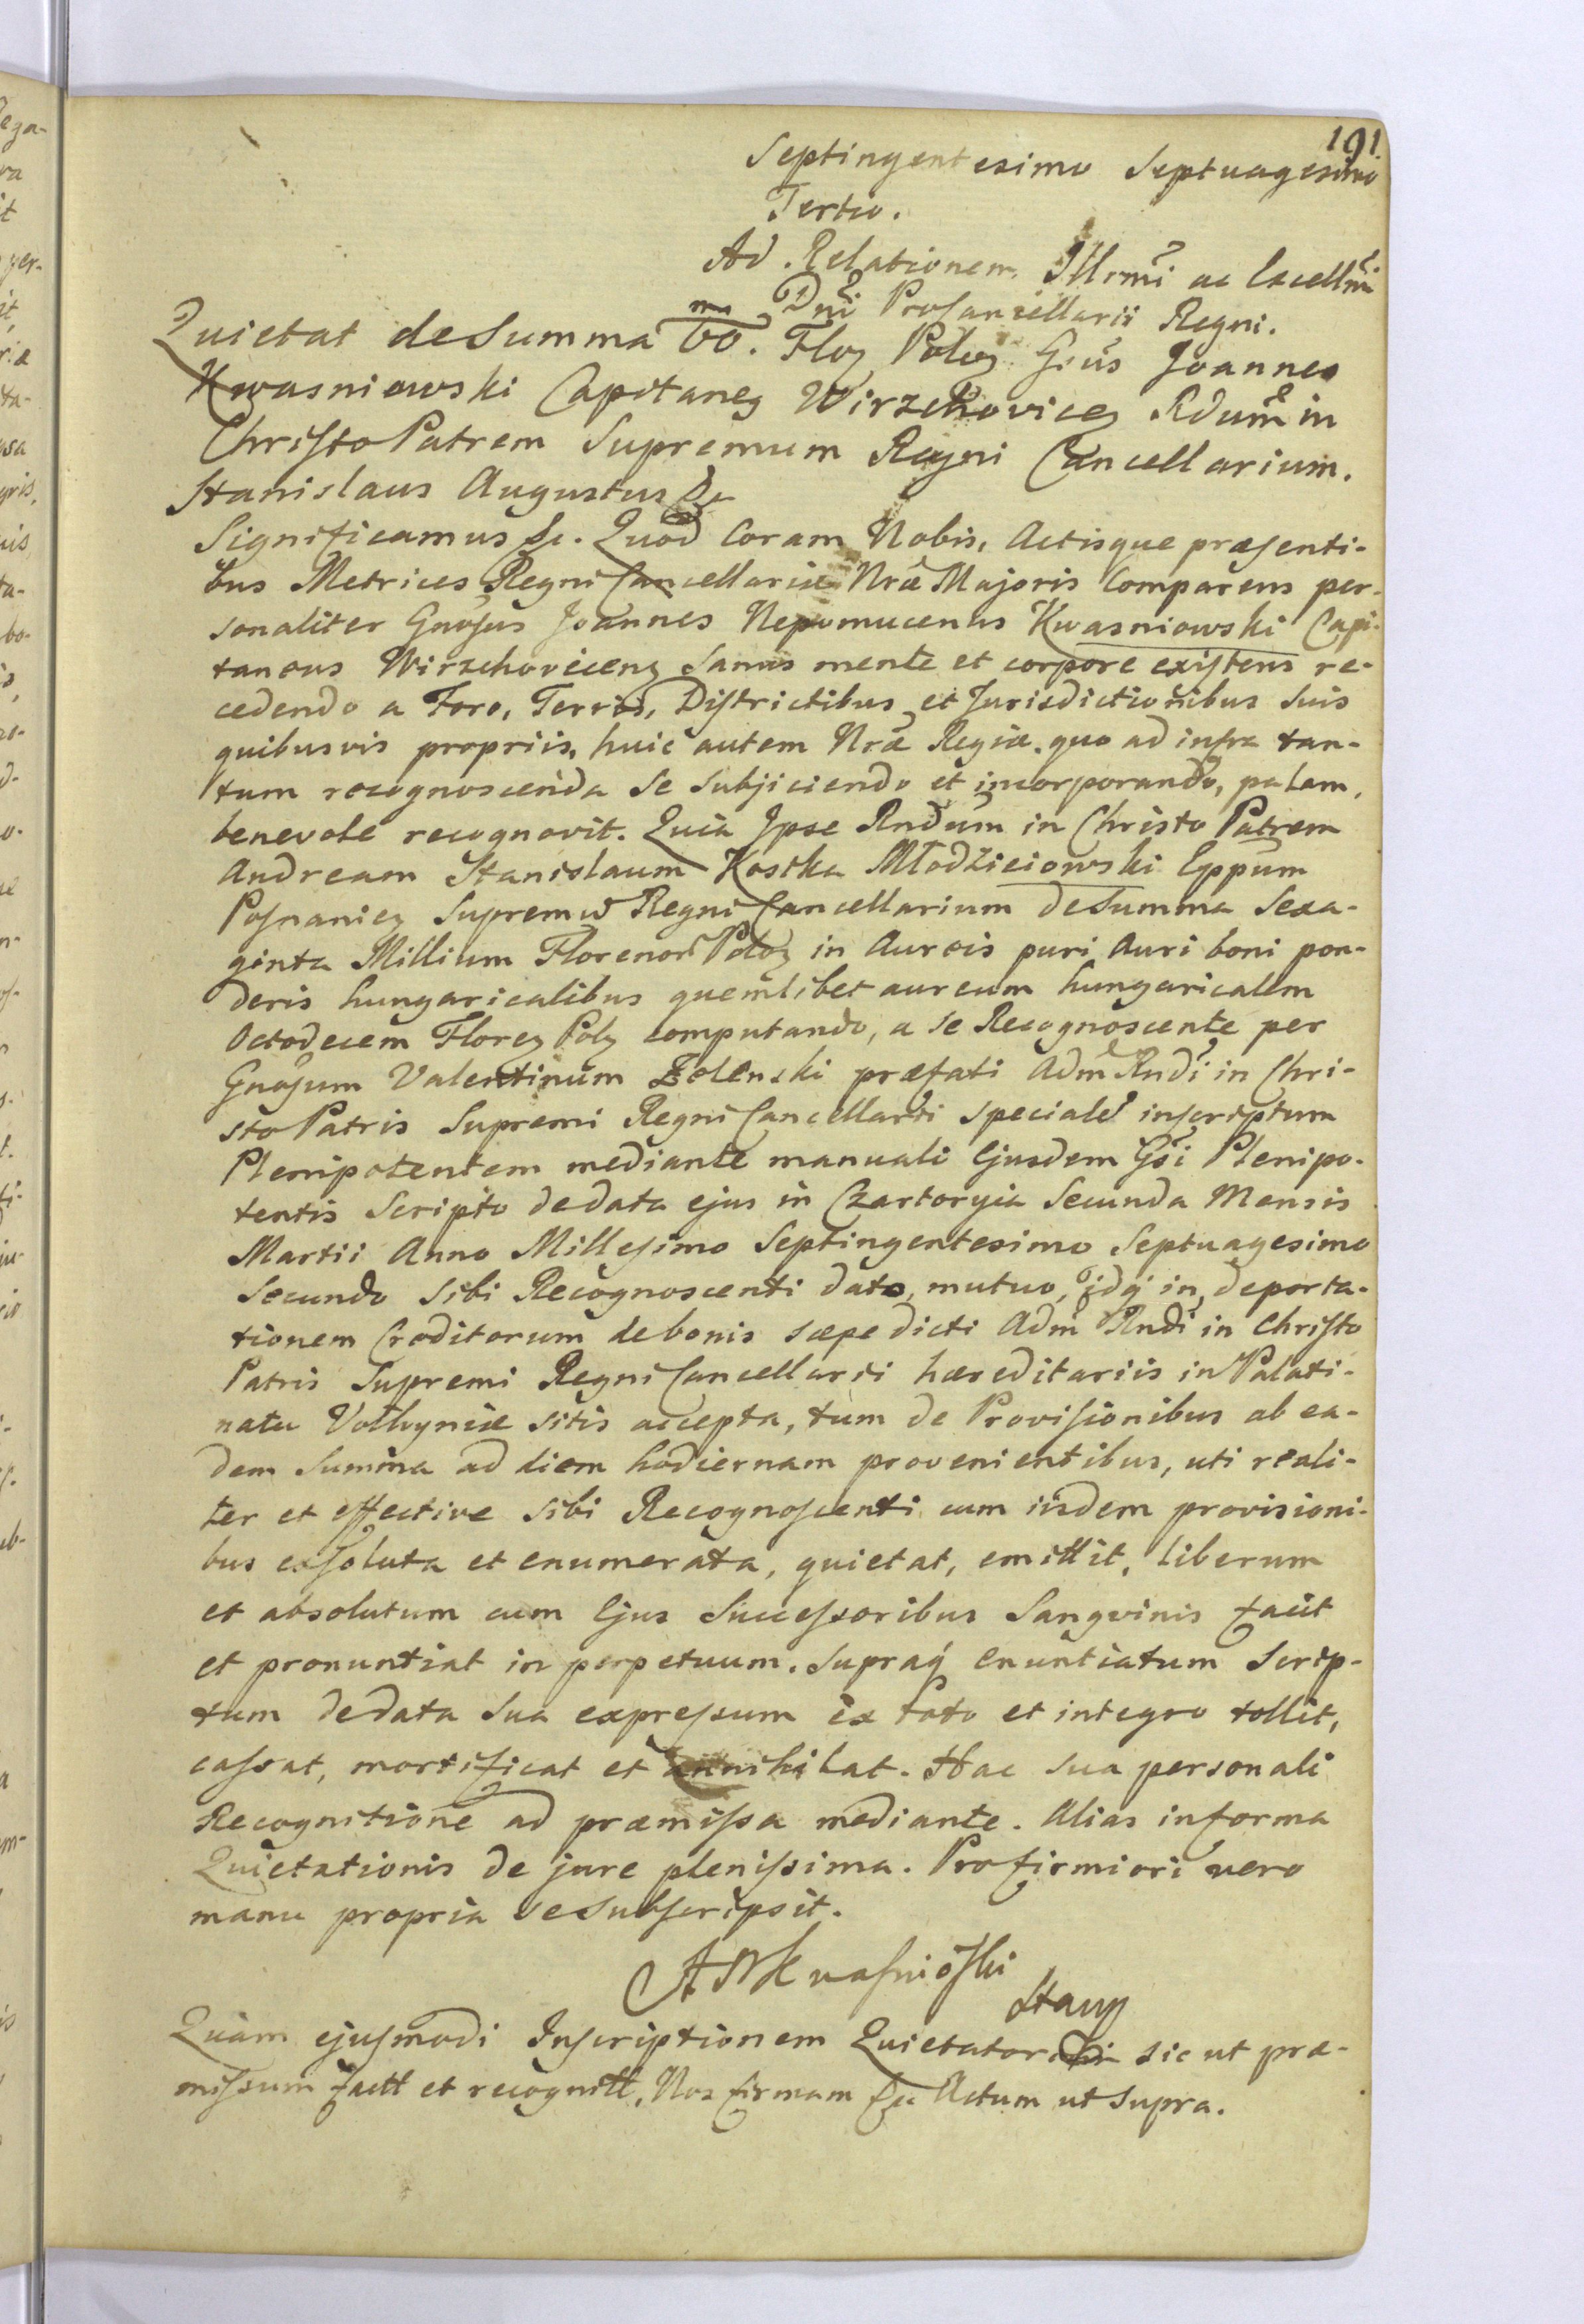 191.
Septingentesimo Septuagesimo
Tertio.
Ad Relationem Illrmi ac Excellmi
Dni Procancellarii Regni.
Quietat de Summa 60 m. Floz Poloz Gsus Joannes
Kwasniowski Capitaneg Wirzchovieceg Rdum in
Christo Patrem Supremum Regni Cancellarium.
Stanislaus Augustus &c
Significamus &c. Quod Coram Nobis, Actisque præsenti-
bus Metrices Regni Cancellariæ Nræ Majoris Comparens per-
sonaliter Gnosus Joannes Nepomucenus Kwasniowski Capi-
taneus Wirzchoviceng Sanus mente et corpore existens re-
cedendo a Foro, Terris, Districtibus et Jurisdictionibus suis
quibusvis propriis, huic autem Nræ Regiæ, quo ad infra tan-
tum recognoscenda se subjiciendo et incorporando, palam,
benevole recognovit. Quia Ipse Rndum in Christo Patrem
Andream Stanislaum Kostka Młodzieiowski Eppum
Posnanieg Supremu Regni Cancellarium de Summa Sexa-
ginta Millium Florenor Poloz in Aureis puri Auri boni pon-
deris hungaricalibus quemlibet aureum hungaricalem
Octodecem Florez Polz computando, a se Recognoscente per
Gnosum Valentinum Zolenski præfati Adm Rndi in Chri-
sto Patris Supremi Regni Cancellarii specialr inscriptum
Plenipotentem mediante manuali Ejusdem Gsi Plenipo-
tentis Scripto de data ejus in Czartoryia Secunda Mensis
Martii Anno Millesimo Septingentesimo Septuagesimo
Secundo sibi Recognoscenti dato, mutuo, idq in deporta-
tionem Creditorum de bonis sæpe dicti Adm Rndi in Christo
Patris Supremi Regni Cancellarii hæreditariis in Palati-
natu Volhyniæ sitis accepta, tum de Provisionibus ab ea-
dem Summa ad diem hodiernam provenientibus, uti reali-
ter et effective sibi Recognoscenti cum iisdem provisioni-
bus exsoluta et enumerata, quietat, emittit, liberum
et absolutum cum Ejus Successoribus Sangvinis facit
et pronuntiat in perpetuum. Supraq enuntiatum Scrip-
tum de data sua expressum ex toto et integro tollit,
cassat, mortificat et annihilat. Hac sua personali
Recognitione ad præmissa mediante. Alias in forma
Quietationis de jure plenissima. Pro firmiori vero
manu propria se subscripsit.
Kwasnioski
Quam ejusmodi Inscriptionem Quietator sic ut præ-
missum factt et recognitt, Nos firmam &c Actum ut supra.